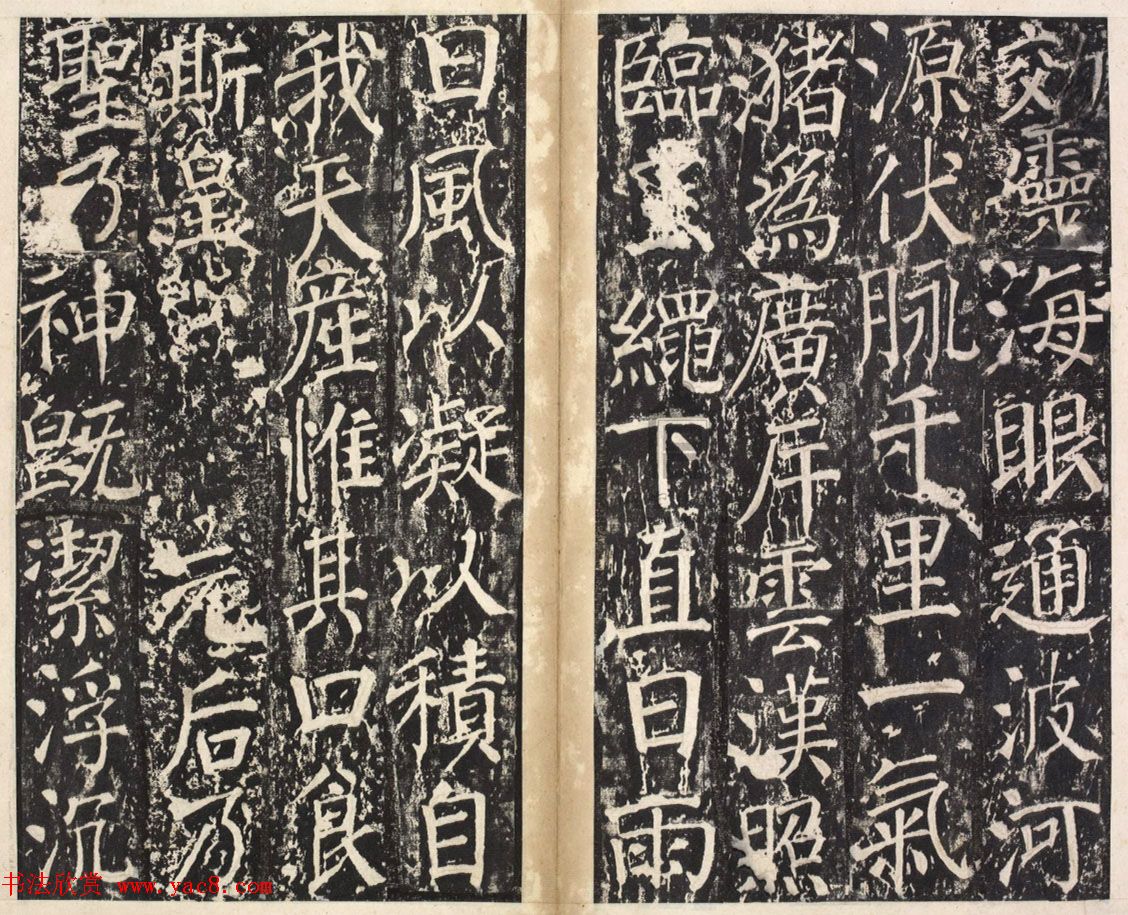 効靈海眼通波河
源伏脉千里一氣
猪爲廣斥雲漢昭
臨玉繩下直曰雨
曰風以凝以積自
我天産惟其口食
斯皇元后乃
聖乃神既潔浮沉
书法欣赏 www.yac8.com